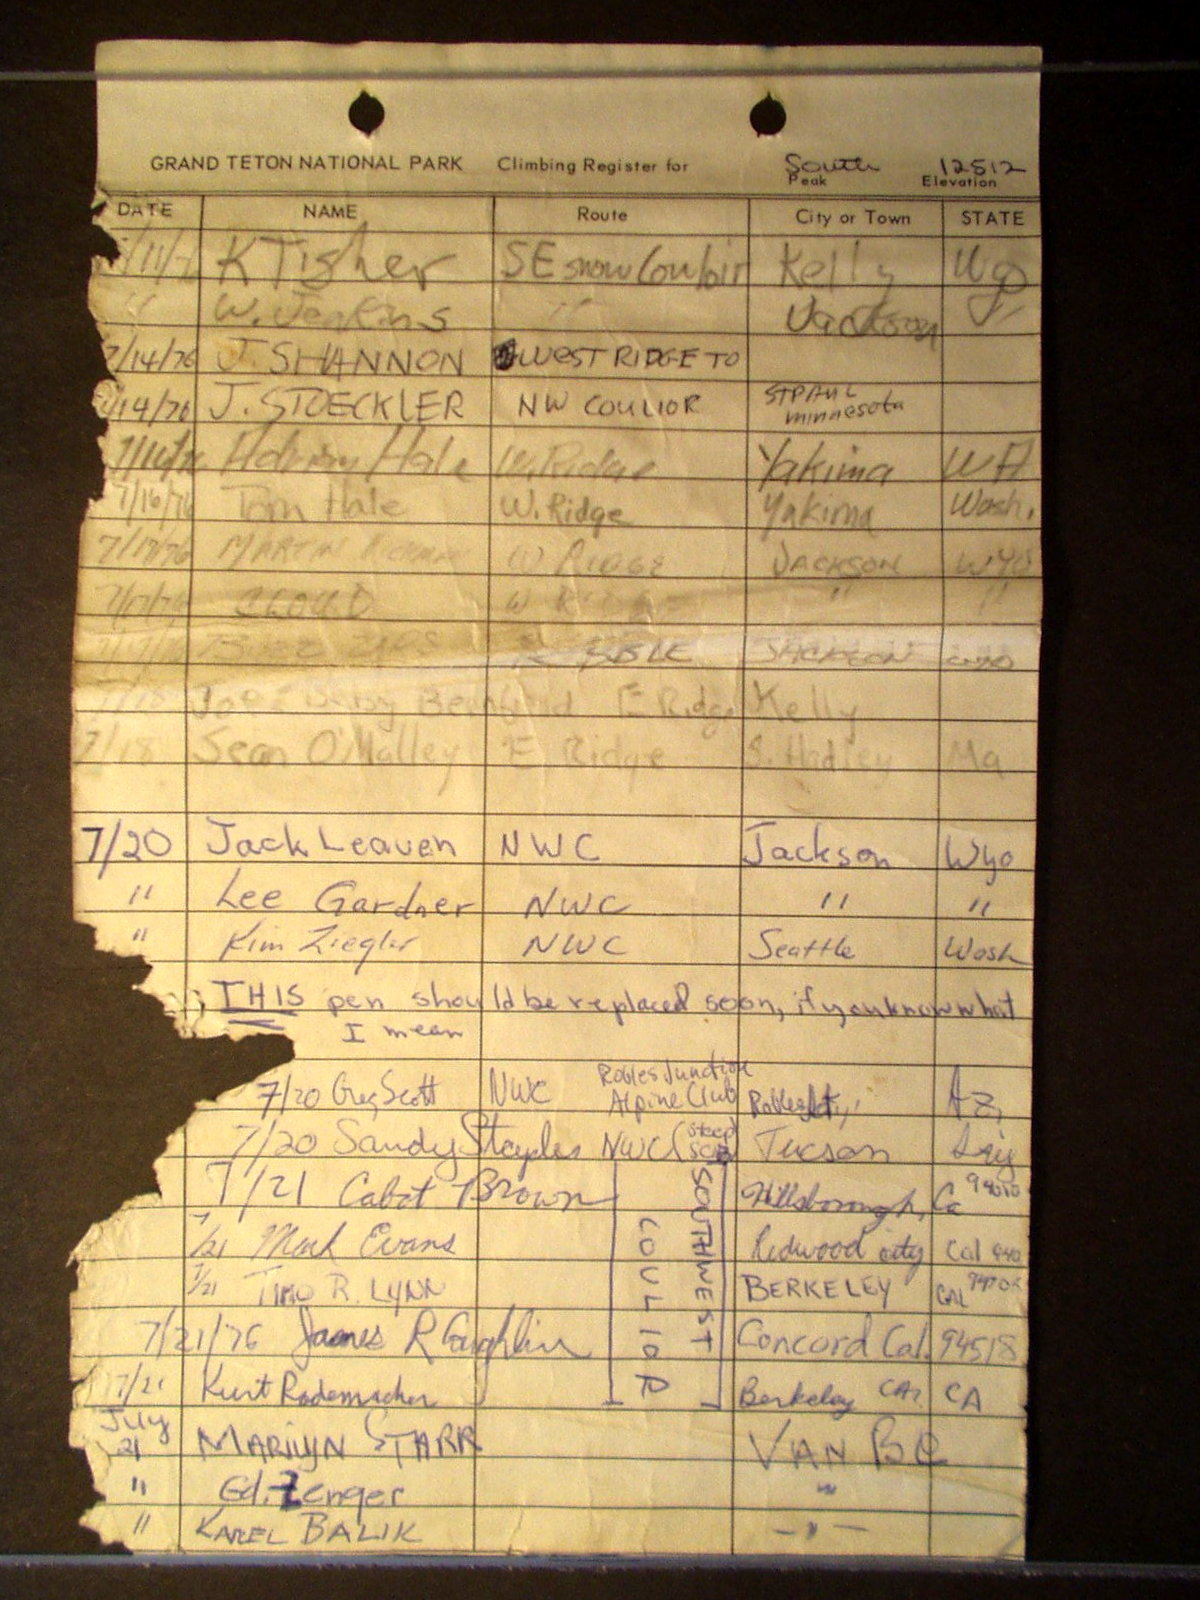 GRAND TETON NATIONAL PARK Climbing Register for South Peak 12512 Elevation
DATE NAME Route City or Town STATE
K Tisher SE snow Couloir Kelly Wyo
" W. Jenkins " Jackson "
7/14/76 J. SHANNON WEST RIDGE TO
/14/76 J. STOECKLER NW COULIOR ST PAUL minnesota
7/16/76 Hale W. Ridge Yakima WA
7/16/76 Tom Hale W. Ridge Yakima Wash.
7/17/76 MARTIN W RIDGE JACKSON WYO
W RIDGE " "
JACKSON
7/18 Joe E Ridge Kelly
7/18 Sean O'Malley E Ridge S. Hadley Ma
7/20 Jack Leaven NWC Jackson Wyo
" Lee Gardner NWC " "
" Kim Ziegler NWC Seattle Wash
THIS pen should be replaced soon, if you know what
I mean
7/20 Greg Scott NWC Robles Junction Alpine Club Robles Jct., Az,
7/20 Sandy Staples NWC (steep Tucson Ariz
7/21 Cabot Brown Hillsborough, Ca 94010
7/21 Mark Evans Redwood city Cal 940
7/21 R. LYNN BERKELEY CAL
SOUTHWEST
COULIOR
7/21/76 James R Coughlin Concord Cal. 94518
7/21 Kurt Rademacher Berkeley CA
July 21 MARILYN STARR VAN BC
" Ed. Zenger "
" KAREL BALIK — " —